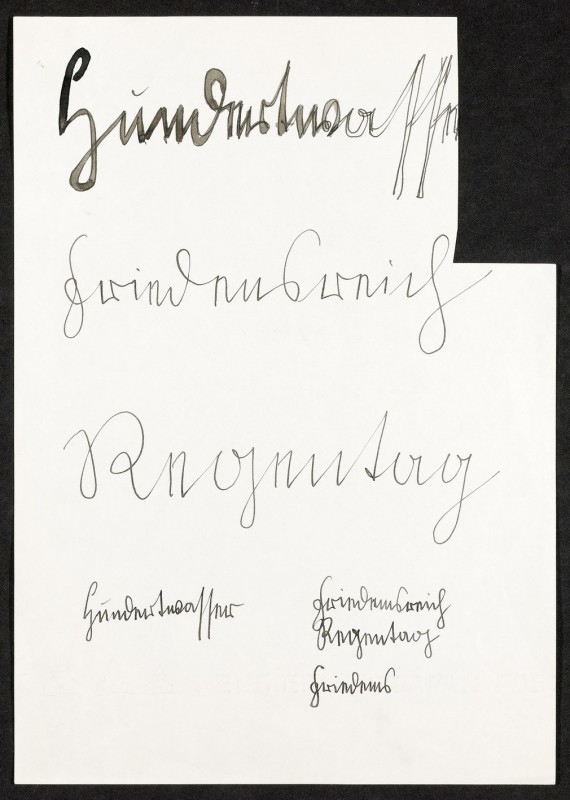 Hundertwasse
Friedensreich
Regentag
Hundertwasser
Friedensreich
Regentag
Friedens